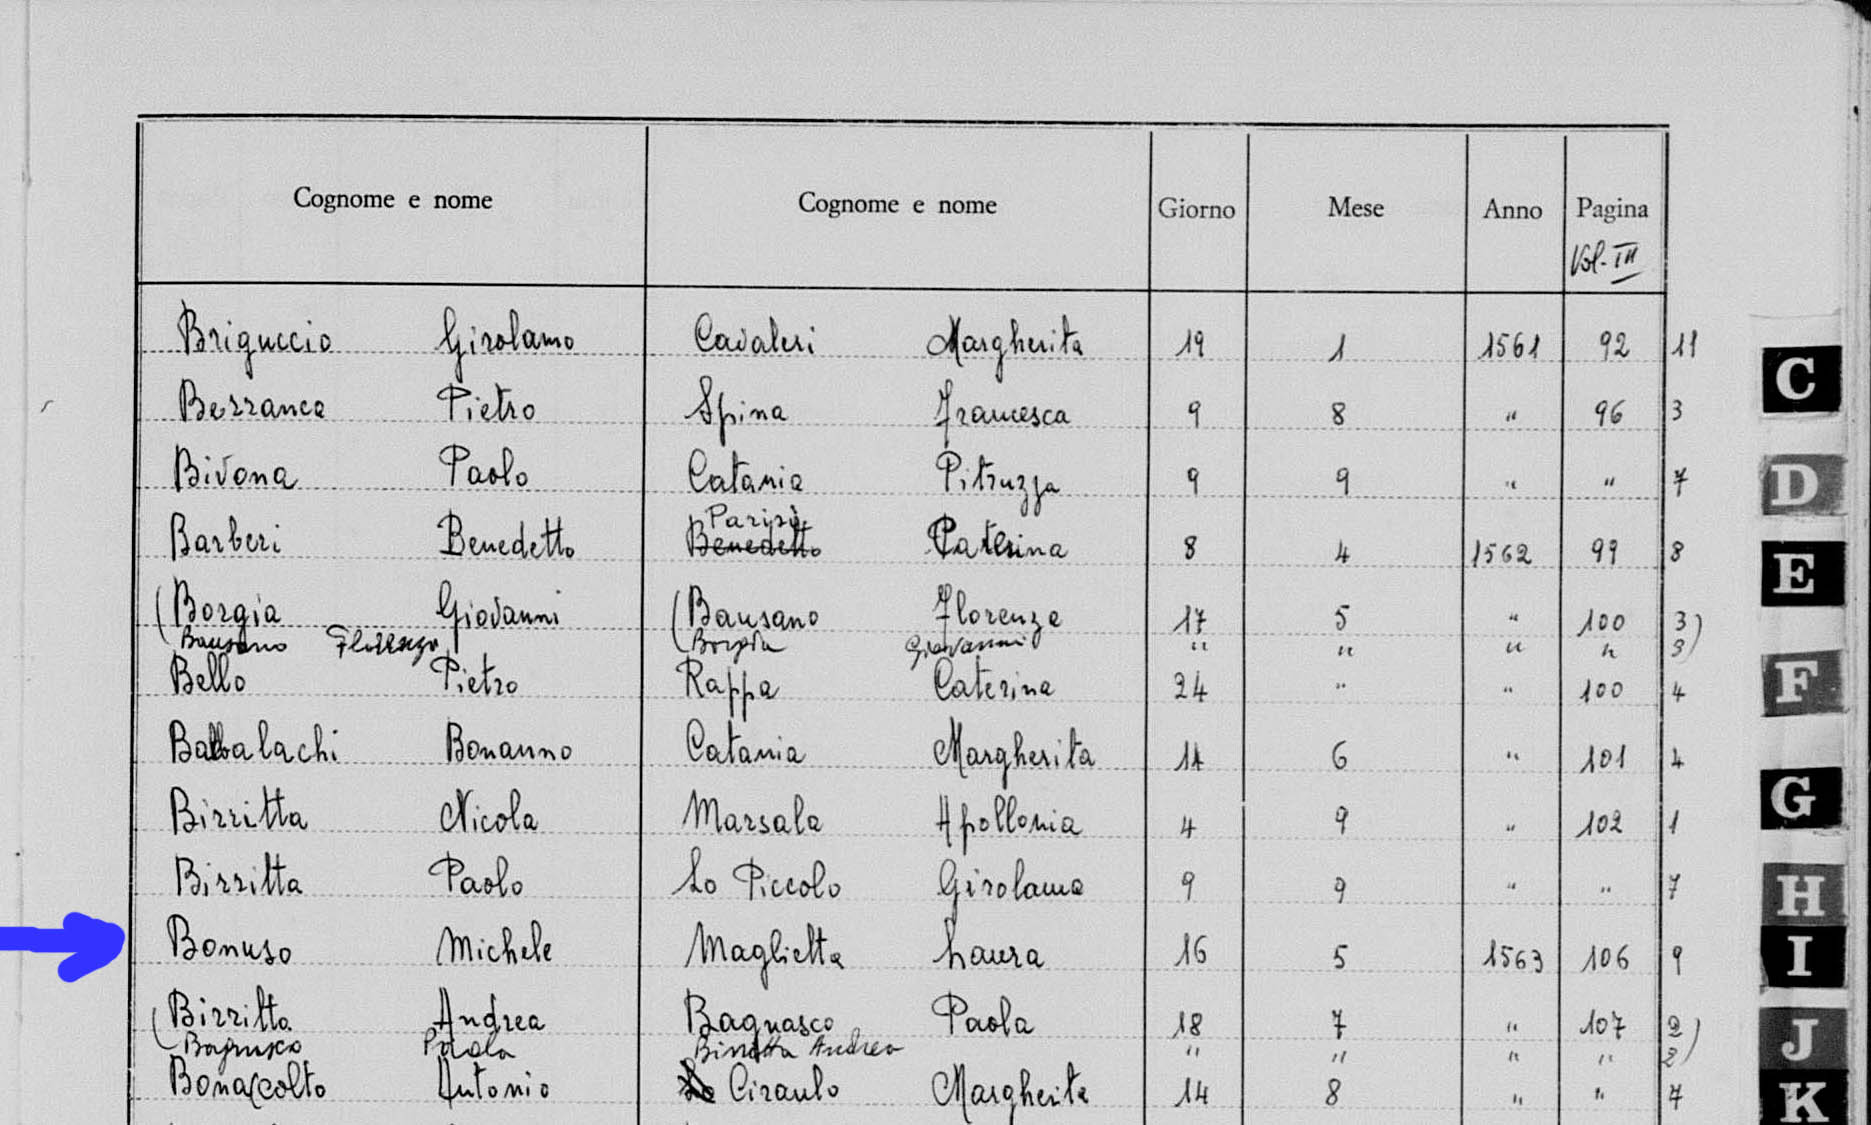 Cognome e nome Cognome e nome Giorno Mese Anno Pagina
Vol. III
Briguccio Girolamo Cavaleri Margherita 19 1 1561 92 11
Berranca Pietro Spina Francesca 9 8 " 96 3
Bivona Paolo Catania Pitruzza 9 9 " " 7
Parisi
Barberi Benedetto Benedetto Caterina 8 4 1562 99 8
(Borgia Giovanni (Bausano Florenza 17 5 " 100 3)
Bausano Florenza Borgia Giovanni " " " " 3)
Bello Pietro Rappa Caterina 24 " " 100 4
Balbalachi Bonanno Catania Margherita 14 6 " 101 4
Birritta Nicola Marsala Apollonia 4 9 " 102 1
Birritta Paolo Lo Piccolo Girolama 9 9 " " 7
Bonuso Michele Maglietta Laura 16 5 1563 106 9
(Birritta Andrea Bagnasco Paola 18 7 " 107 2)
Bagnasco Paola Birritta Andrea " " " " 2)
Bonaccolto Antonio Lo Ciraulo Margherita 14 8 " " 7
C
D
E
F
G
H
I
J
K